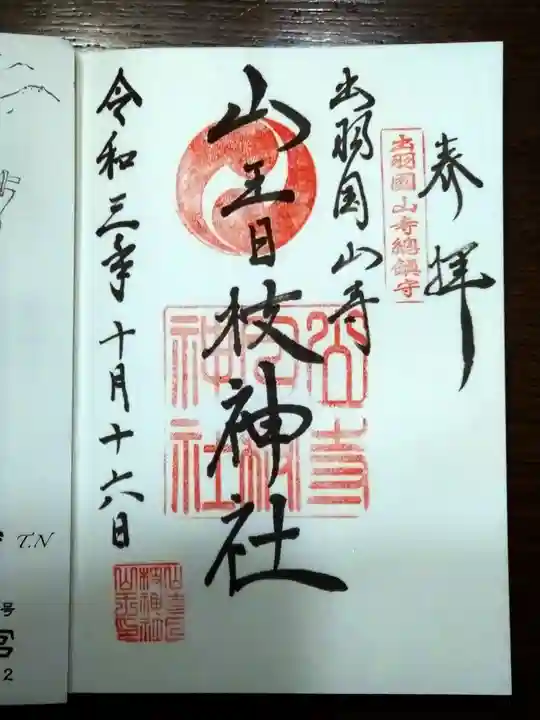 奉拝
出羽國山寺總鎮守
出羽国山寺
山王日枝神社
山寺日枝神社
令和三年十月十六日
T.N
号
宮
2